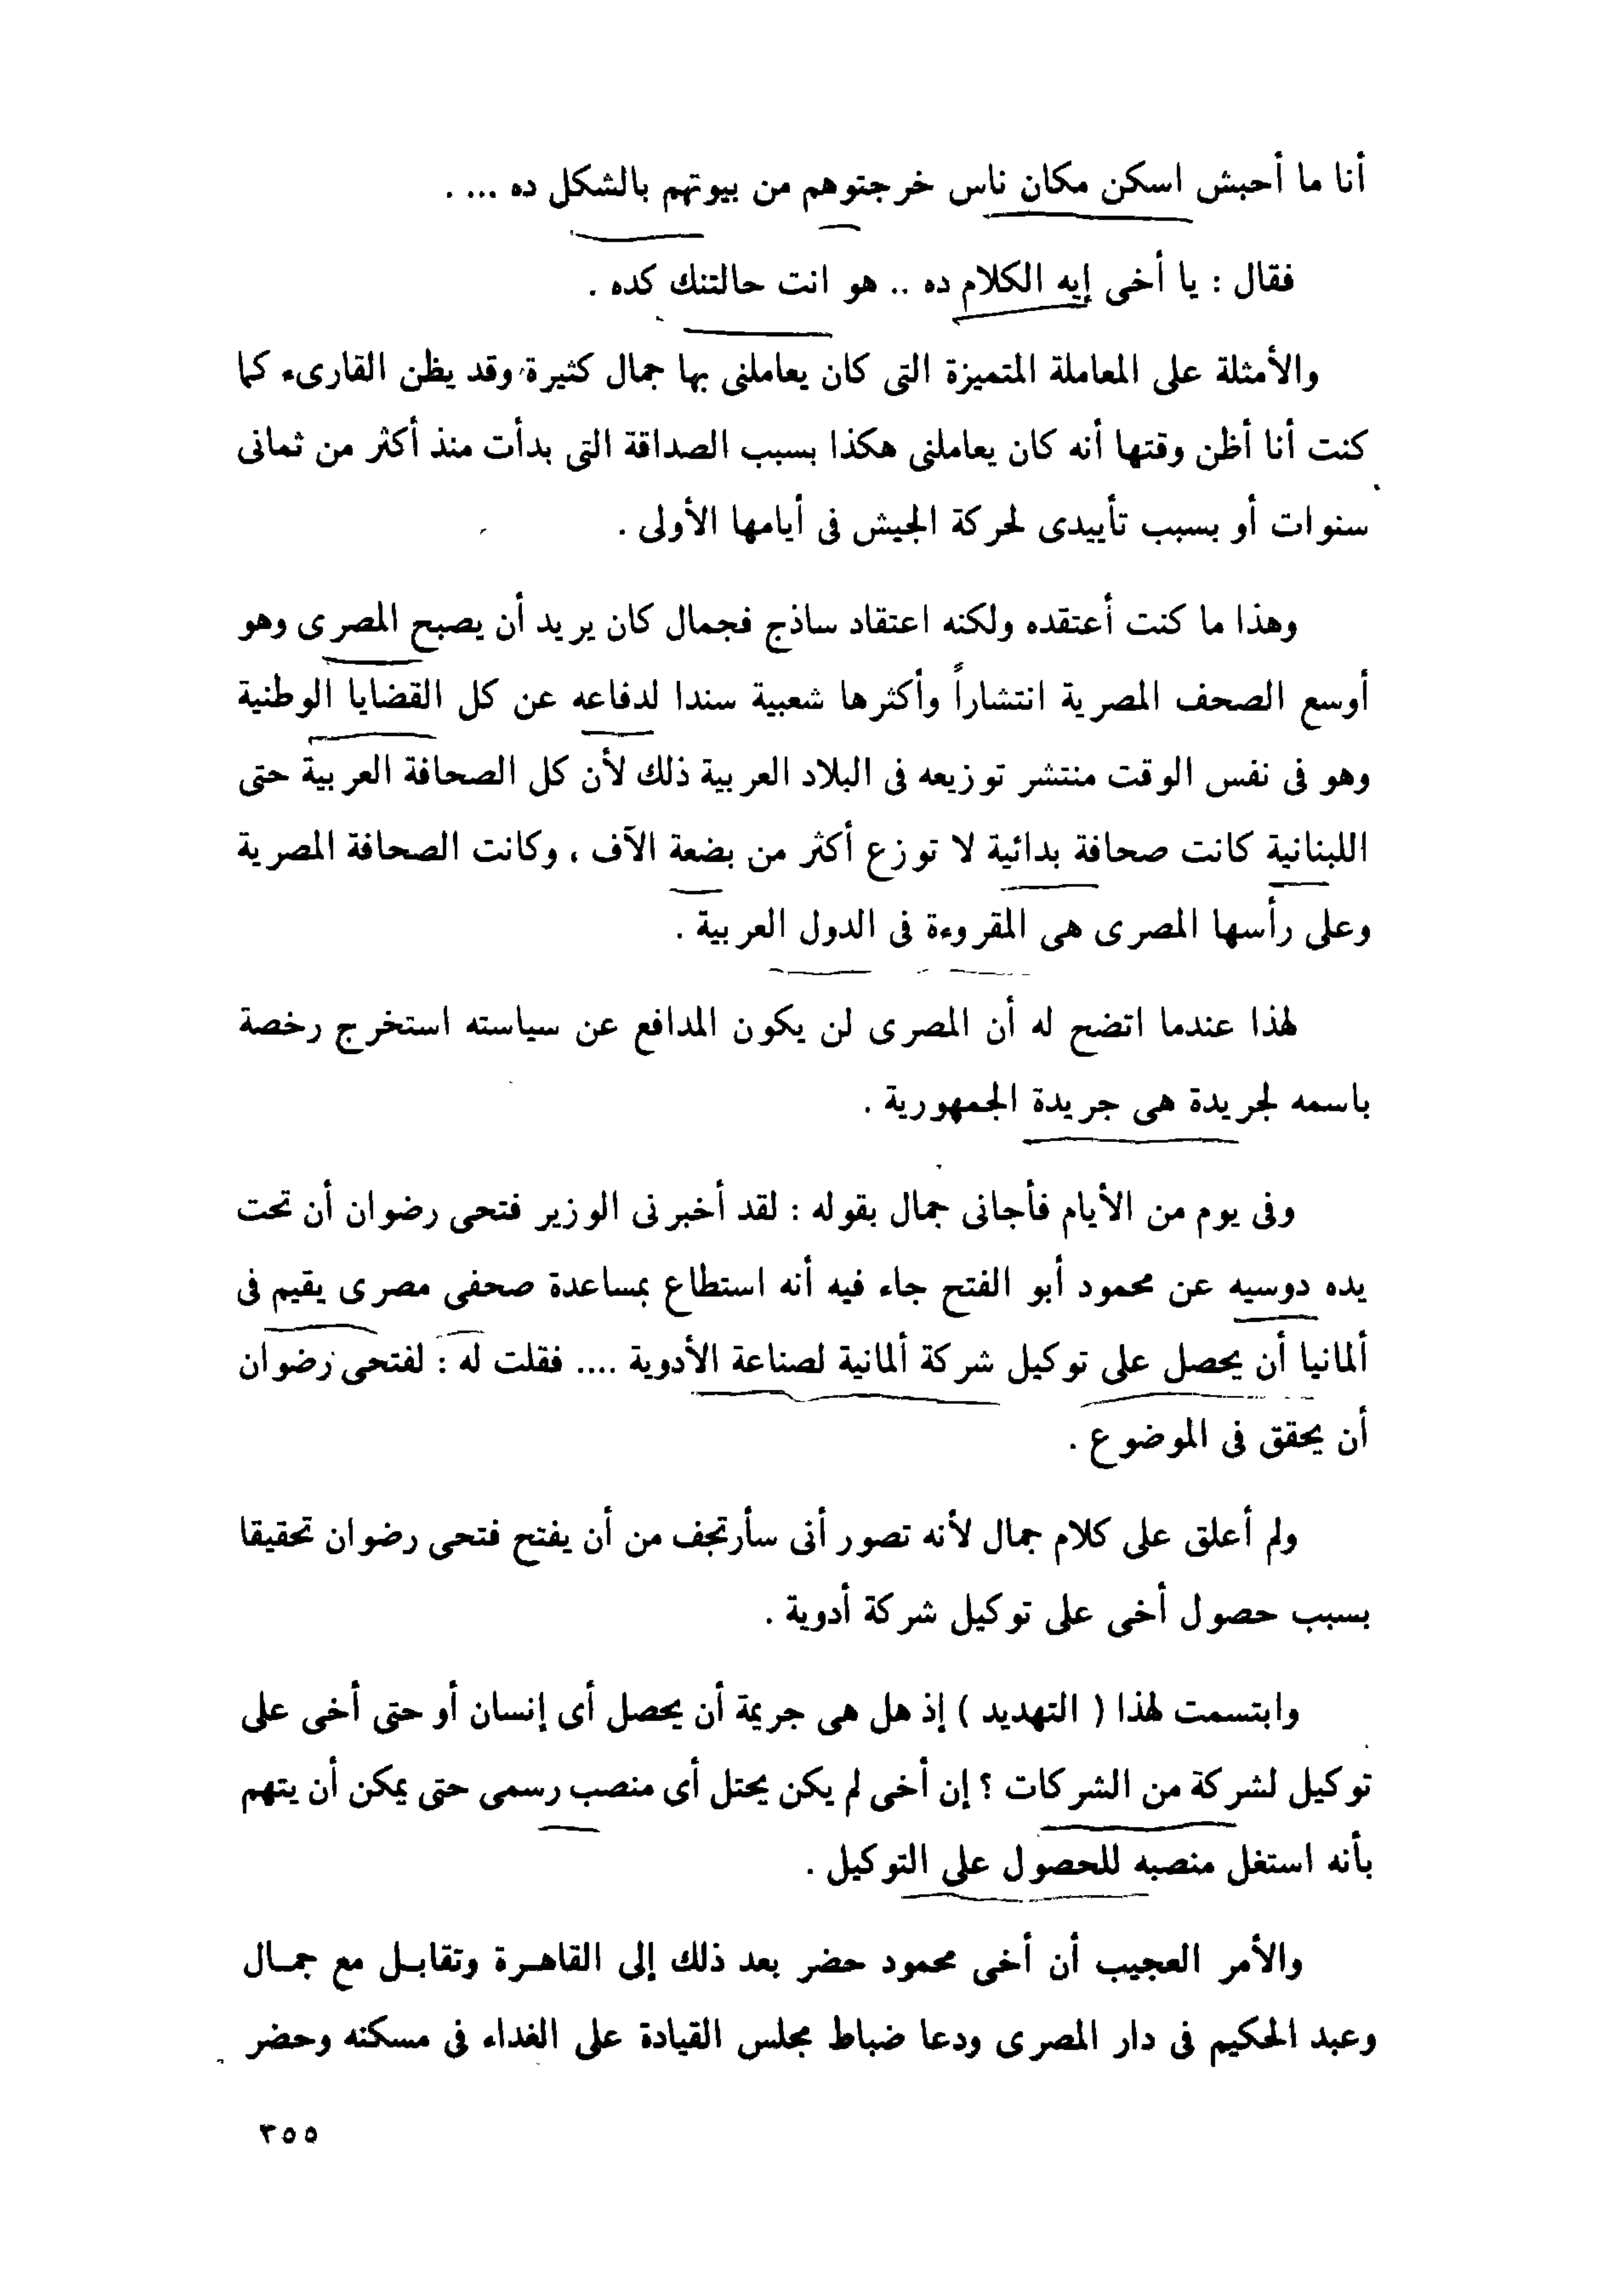 أنا ما أحبش اسكن مكان ناس خرجتوهم من بيوتهم بالشكل ده ... .
فقال : يا أخى إيه الكلام ده .. هو انت حالتنك كده .
والأمثلة على المعاملة المتميزة التى كان يعاملنى بها جمال كثيرة وقد يظن القارىء كما
كنت أنا أظن وقتها أنه كان يعاملنى هكذا بسبب الصداقة التى بدأت منذ أكثر من ثمانى
سنوات أو بسبب تأييدى لحركة الجيش فى أيامها الأولى .
وهذا ما كنت أعتقده ولكنه اعتقاد ساذج فجمال كان يريد أن يصبح المصرى وهو
أوسع الصحف المصرية انتشاراً وأكثرها شعبية سندا لدفاعه عن كل القضايا الوطنية
وهو فى نفس الوقت منتشر توزيعه فى البلاد العربية ذلك لأن كل الصحافة العربية حتى
اللبنانية كانت صحافة بدائية لا توزع أكثر من بضعة الآف ، وكانت الصحافة المصرية
وعلى رأسها المصرى هى المقروءة فى الدول العربية .
لهذا عندما اتضح له أن المصرى لن يكون المدافع عن سياسته استخرج رخصة
باسمه لجريدة هى جريدة الجمهورية .
وفى يوم من الأيام فأجانى جمال بقوله : لقد أخبرنى الوزير فتحى رضوان أن تحت
يده دوسيه عن محمود أبو الفتح جاء فيه أنه استطاع بمساعدة صحفى مصرى يقيم فى
ألمانيا أن يحصل على توكيل شركة ألمانية لصناعة الأدوية .... فقلت له : لفتحى رضوان
أن يحقق فى الموضوع .
ولم أعلق على كلام جمال لأنه تصور أنى سأرتجف من أن يفتح فتحى رضوان تحقيقا
بسبب حصول أخى على توكيل شركة أدوية .
وابتسمت لهذا ( التهديد ) إذ هل هى جريمة أن يحصل أى إنسان أو حتى أخى على
توكيل لشركة من الشركات ؟ إن أخى لم يكن يحتل أى منصب رسمى حتى يمكن أن يتهم
بأنه استغل منصبه للحصول على التوكيل .
والأمر العجيب أن أخى محمود حضر بعد ذلك إلى القاهـرة وتقابـل مع جمـال
وعبد الحكيم فى دار المصرى ودعا ضباط مجلس القيادة على الغداء فى مسكنه وحضر
٣٥٥